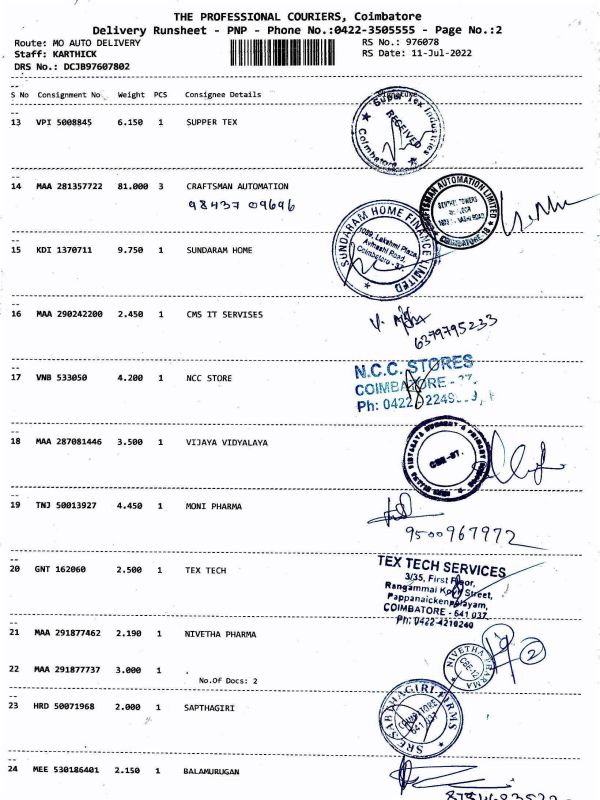 THE PROFESSIONAL COURIERS, Coimbatore
Delivery Runsheet - PNP - Phone No.:0422-3505555 - Page No.:2
Route: MO AUTO DELIVERY
RS No.: 976078
Staff: KARTHICK
RS Date: 11-Jul-2022
DRS No.: DCJB97607802
S No Consignment No Weight PCS Consignee Details
13 VPI 5008845 6.150 1 SUPPER TEX
Supper Tex Industries
RECEIVED
Coimbatore
14 MAA 281357722 81.000 3 CRAFTSMAN AUTOMATION
98437 09696
CRAFTSMAN AUTOMATION LIMITED
SENTHEL TOWERS
COIMBATORE 18
15 KDI 1370711 9.750 1 SUNDARAM HOME
SUNDARAM HOME FINANCE LIMITED
1089, Lakshmi Plaza,
Avinashi Road,
Coimbatore - 37.
16 MAA 290242200 2.450 1 CMS IT SERVISES
6379795233
17 VNB 533050 4.200 1 NCC STORE
N.C.C. STORES
COIMBATORE - 37.
Ph: 0422
18 MAA 287081446 3.500 1 VIJAYA VIDYALAYA
CBE-37.
19 TNJ 50013927 4.450 1 MONI PHARMA
9500967972
20 GNT 162060 2.500 1 TEX TECH
TEX TECH SERVICES
3/35, First Floor,
Rangammal Kovil Street,
Pappanaickenpalayam,
COIMBATORE - 641 037.
Ph: 0422-4210240
21 MAA 291877462 2.190 1 NIVETHA PHARMA
22 MAA 291877737 3.000 1
No.Of Docs: 2
NIVETHA PHARMA
2
23 HRD 50071968 2.000 1 SAPTHAGIRI
SRE SABTHAGIRI FIRMS
COIMBATORE
24 MEE 530186401 2.150 1 BALAMURUGAN